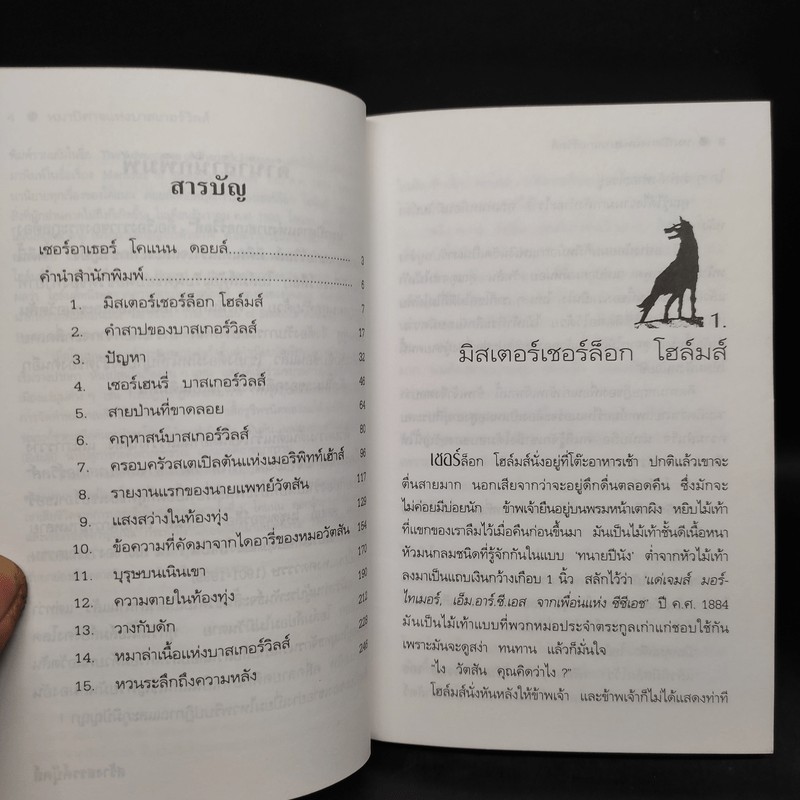 สารบัญ
เซอร์อาเธอร์ โคแนน ดอยล์ 3
คำนำสำนักพิมพ์ 6
1. มิสเตอร์เชอร์ล็อก โฮล์มส์ 7
2. คำสาปของบาสเกอร์วิลส์ 17
3. ปัญหา 32
4. เซอร์เฮนรี่ บาสเกอร์วิลส์ 48
5. สายป่านที่ขาดลอย 64
6. คฤหาสน์บาสเกอร์วิลส์ 80
7. ครอบครัวสเตเปิลตันแห่งเมอริพิทท์เฮ้าส์ 96
8. รายงานแรกของนายแพทย์วัตสัน 117
9. แสงสว่างในท้องทุ่ง 128
10. ข้อความที่คัดมาจากไดอารี่ของหมอวัตสัน 154
11. บุรุษบนเนินเขา 170
12. ความตายในท้องทุ่ง 190
13. วางกับดัก 212
14. หมาล่าเนื้อแห่งบาสเกอร์วิลส์ 228
15. หวนระลึกถึงความหลัง 246
1.
มิสเตอร์เชอร์ล็อก โฮล์มส์
เชอร์ล็อก โฮล์มส์นั่งอยู่ที่โต๊ะอาหารเช้า ปกติแล้วเขาจะ
ตื่นสายมาก นอกเสียจากว่าจะอยู่ดึกดื่นตลอดคืน ซึ่งมักจะ
ไม่ค่อยมีบ่อยนัก ข้าพเจ้ายืนอยู่บนพรมหน้าเตาผิง หยิบไม้เท้า
ที่แขกของเราลืมไว้เมื่อคืนก่อนขึ้นมา มันเป็นไม้เท้าชั้นดีเนื้อหนา
หัวมนกลมชนิดที่รู้จักกันในแบบ 'ทนายปีนัง' ต่ำจากหัวไม้เท้า
ลงมาเป็นแถบเงินกว้างเกือบ 1 นิ้ว สลักไว้ว่า 'แด่เจมส์ มอร์-
ไทเมอร์, เอ็ม.อาร์.ซี.เอส จากเพื่อนแห่ง ซีซีเอช' ปี ค.ศ. 1884
มันเป็นไม้เท้าแบบที่พวกหมอประจำตระกูลเก่าแก่ชอบใช้กัน
เพราะมันจะดูสง่า ทนทาน แล้วก็มั่นใจ
"ไง วัตสัน คุณคิดว่าไง ?"
โฮล์มส์นั่งหันหลังให้ข้าพเจ้า และข้าพเจ้าก็ไม่ได้แสดงท่าที